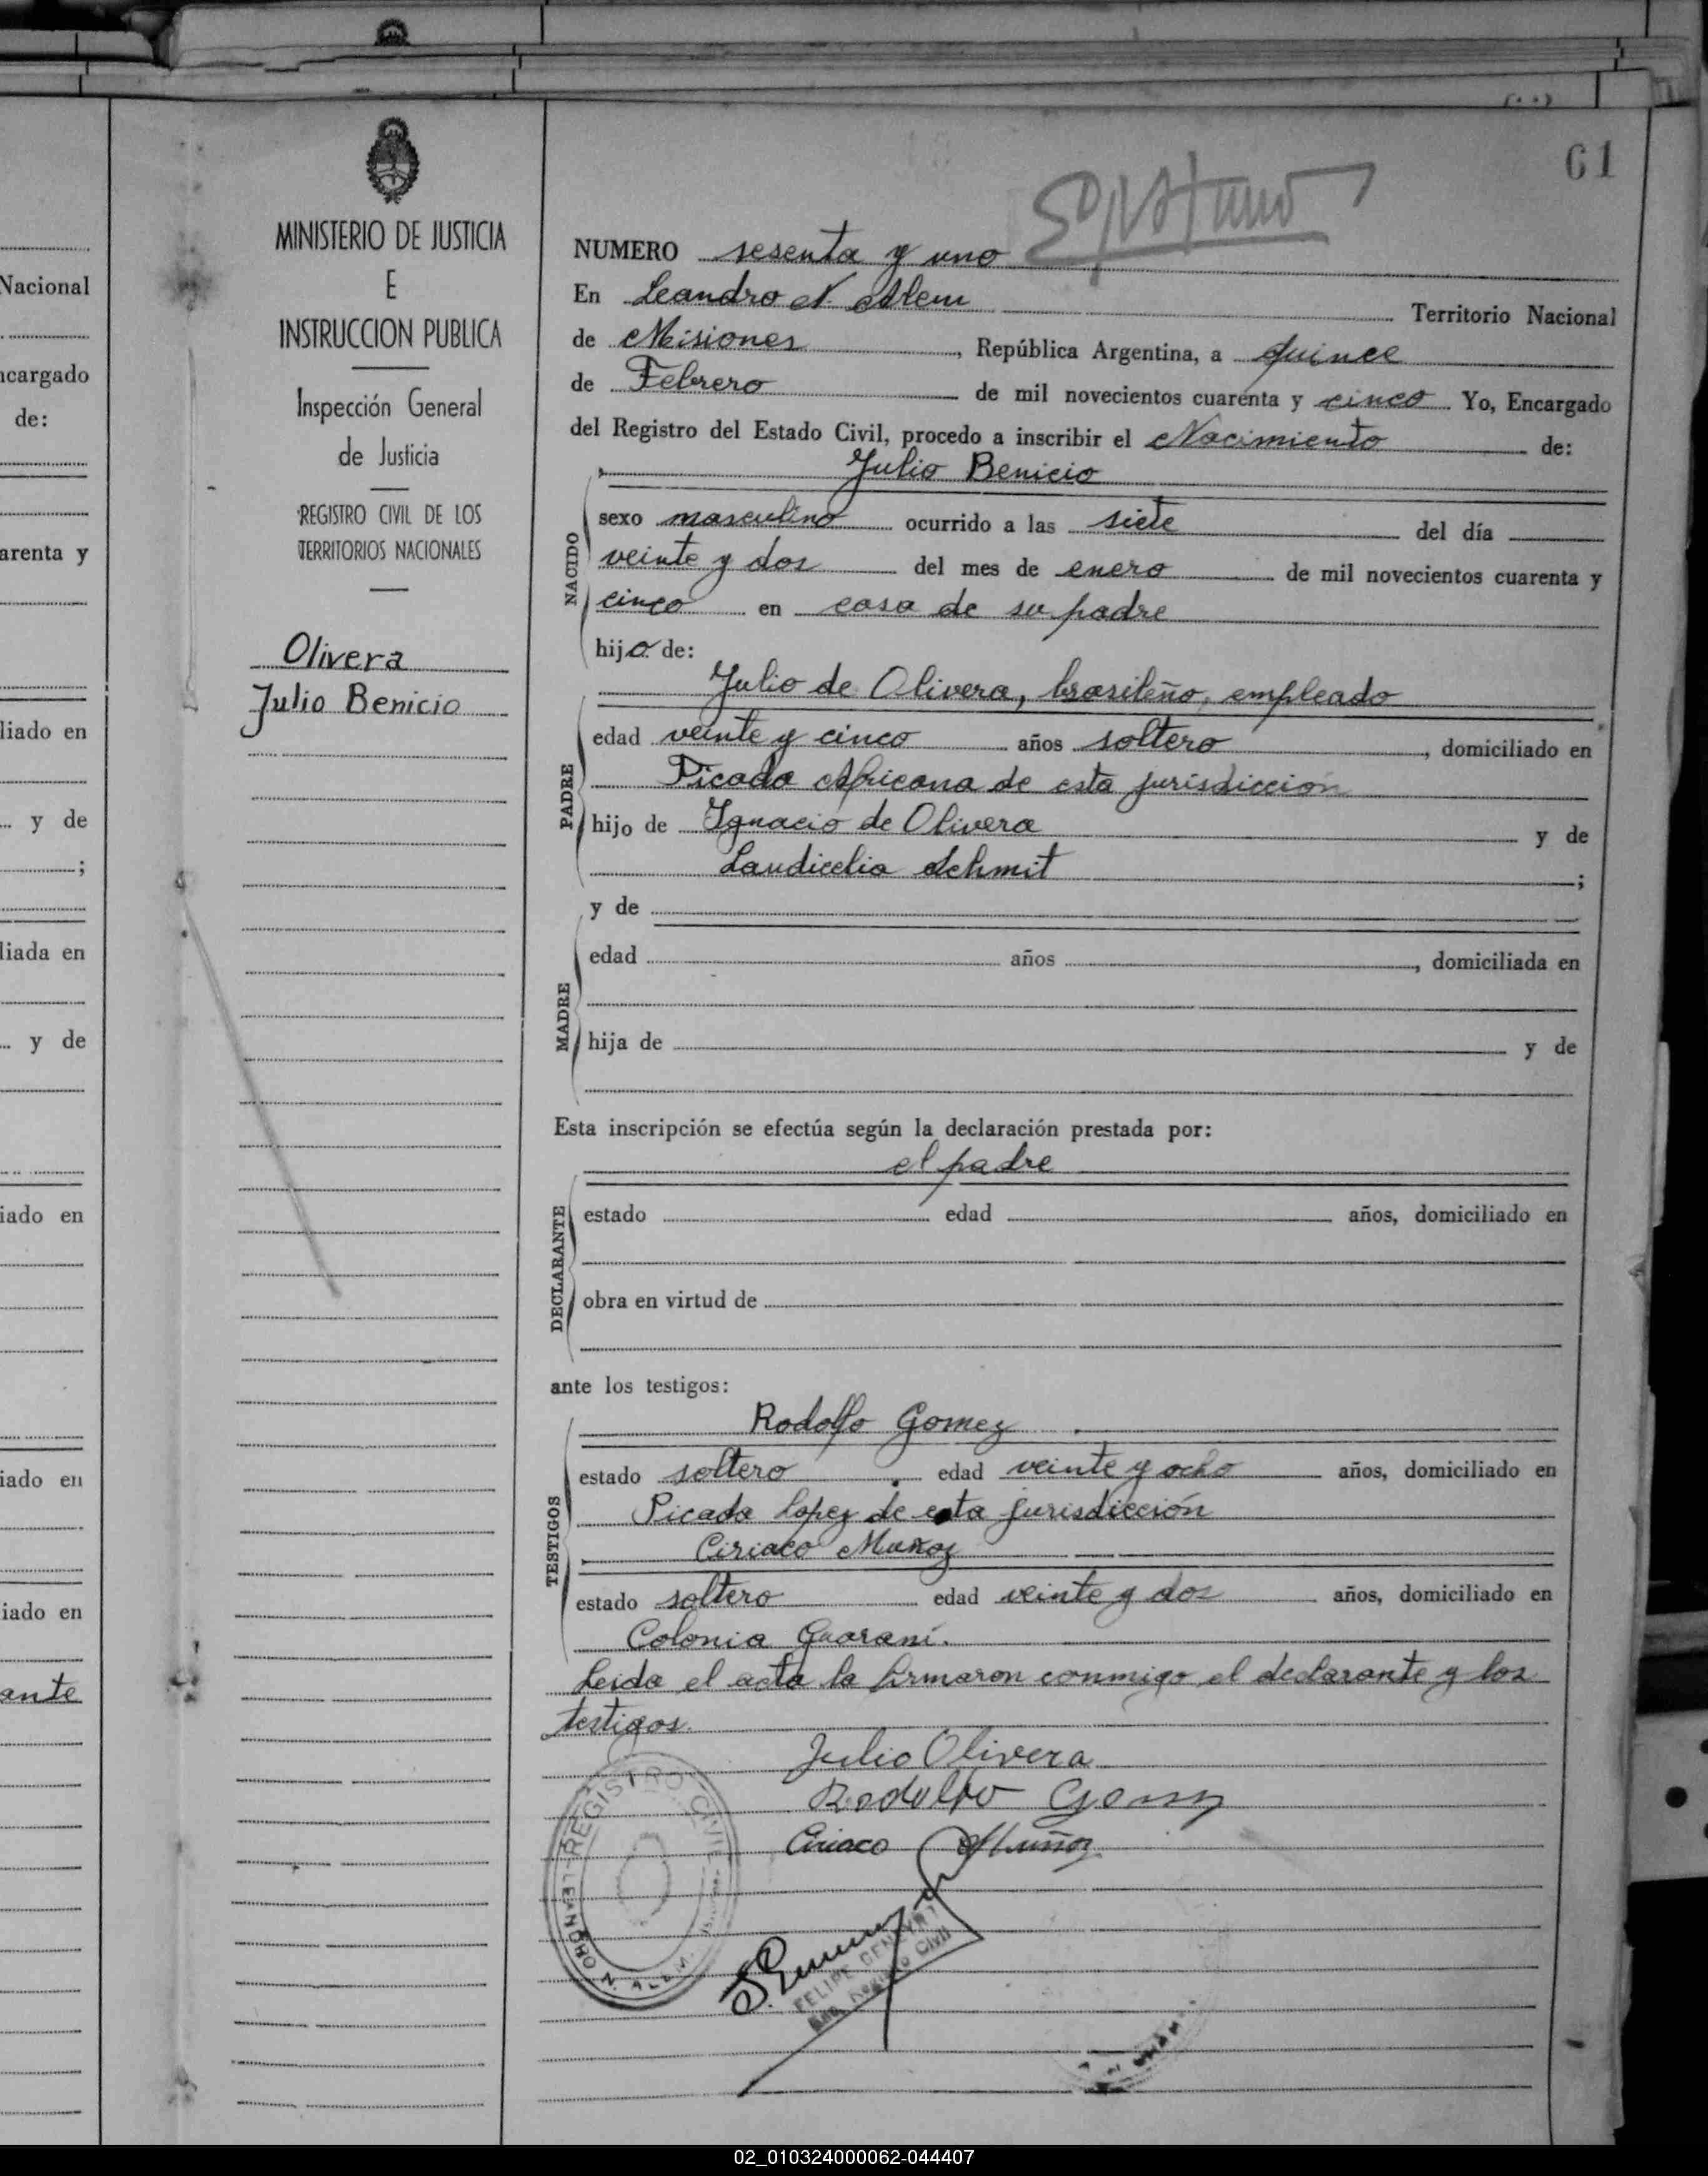 61
MINISTERIO DE JUSTICIA
E
INSTRUCCION PUBLICA
Inspección General
de Justicia
REGISTRO CIVIL DE LOS
TERRITORIOS NACIONALES
Olivera
Julio Benicio
NUMERO sesenta y uno
En Leandro N. Alem Territorio Nacional
de Misiones, República Argentina, a quince
de Febrero de mil novecientos cuarenta y cinco Yo, Encargado
del Registro del Estado Civil, procedo a inscribir el Nacimiento de:
Julio Benicio
NACIDO
sexo masculino ocurrido a las siete del día
veinte y dos del mes de enero de mil novecientos cuarenta y
cinco en casa de su padre
hijo de:
Julio de Olivera, brasileño, empleado
PADRE
edad veinte y cinco años soltero, domiciliado en
Picada Africana de esta jurisdicción
hijo de Ignacio de Olivera y de
Laudicelia Schmit;
y de
MADRE
edad años, domiciliada en
hija de y de
Esta inscripción se efectúa según la declaración prestada por:
el padre
DECLARANTE
estado edad años, domiciliado en
obra en virtud de
ante los testigos:
Rodolfo Gomez
TESTIGOS
estado soltero edad veinte y ocho años, domiciliado en
Picada Lopez de esta jurisdicción
Ciriaco Muñoz
estado soltero edad veinte y dos años, domiciliado en
Colonia Guaraní.
Leída el acta la firmaron conmigo el declarante y los
testigos.
Julio Olivera
Rodolfo Gomez
Ciriaco Muñoz
REGISTRO CIVIL
LEANDRO N. ALEM
FELIPE
Registro Civil
Nacional
ncargado
de:
arenta y
liado en
y de
;
liada en
y de
iado en
iado en
iado en
ante
02_010324000062-044407